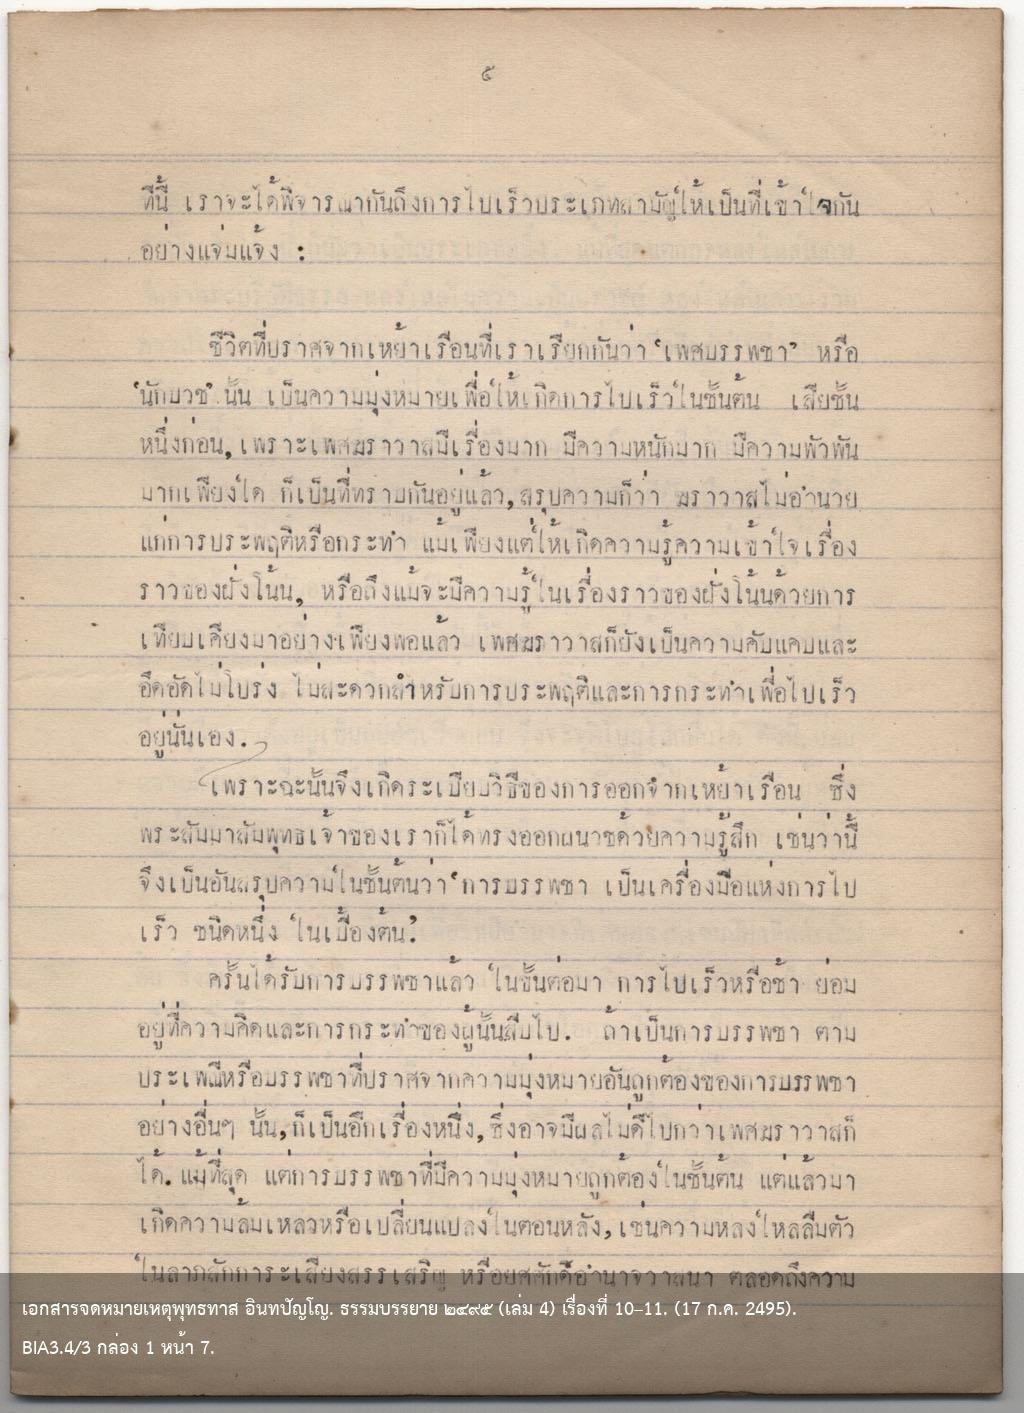 ๕
ทีนี้ เราจะได้พิจารณากันถึงการไปเร็วประเภทสามัญให้เป็นที่เข้าใจกัน
อย่างแจ่มแจ้ง :
ชีวิตที่ปราศจากเหย้าเรือนที่เราเรียกกันว่า 'เพศบรรพชา' หรือ
'นักบวช' นั้น เป็นความมุ่งหมายเพื่อให้เกิดการไปเร็วในชั้นต้น เสียชั้น
หนึ่งก่อน, เพราะเพศฆราวาสมีเรื่องมาก มีความหนักมาก มีความพัวพัน
มากเพียงใด ก็เป็นที่ทราบกันอยู่แล้ว, สรุปความก็ว่า ฆราวาสไม่อำนวย
แก่การประพฤติหรือกระทำ แม้เพียงแต่ให้เกิดความรู้ความเข้าใจเรื่อง
ราวของฝั่งโน้น, หรือถึงแม้จะมีความรู้ในเรื่องราวของฝั่งโน้นด้วยการ
เทียบเคียงมาอย่างเพียงพอแล้ว เพศฆราวาสก็ยังเป็นความคับแคบและ
อึดอัดไม่โปร่ง ไม่สะดวกสำหรับการประพฤติและการกระทำเพื่อไปเร็ว
อยู่นั่นเอง.
เพราะฉะนั้นจึงเกิดระเบียบวิธีของการออกจากเหย้าเรือน ซึ่ง
พระสัมมาสัมพุทธเจ้าของเราก็ได้ทรงออกผนวชด้วยความรู้สึก เช่นว่านี้
จึงเป็นอันสรุปความในชั้นต้นว่า 'การบรรพชา เป็นเครื่องมือแห่งการไป
เร็ว ชนิดหนึ่ง ในเบื้องต้น'
ครั้นได้รับการบรรพชาแล้ว ในชั้นต่อมา การไปเร็วหรือช้า ย่อม
อยู่ที่ความคิดและการกระทำของผู้นั้นสืบไป. ถ้าเป็นการบรรพชา ตาม
ประเพณีหรือบรรพชาที่ปราศจากความมุ่งหมายอันถูกต้องของการบรรพชา
อย่างอื่นๆ นั้น, ก็เป็นอีกเรื่องหนึ่ง, ซึ่งอาจมีผลไม่ดีไปกว่าเพศฆราวาสก็
ได้. แม้ที่สุด แต่การบรรพชาที่มีความมุ่งหมายถูกต้องในชั้นต้น แต่แล้วมา
เกิดความล้มเหลวหรือเปลี่ยนแปลงในตอนหลัง, เช่นความหลงใหลลืมตัว
ในลาภสักการะเสียงสรรเสริญ หรือยศศักดิ์อำนาจวาสนา ตลอดถึงความ
เอกสารจดหมายเหตุพุทธทาส อินทปัญโญ. ธรรมบรรยาย ๒๔๙๕ (เล่ม 4) เรื่องที่ 10–11. (17 ก.ค. 2495).
BIA3.4/3 กล่อง 1 หน้า 7.